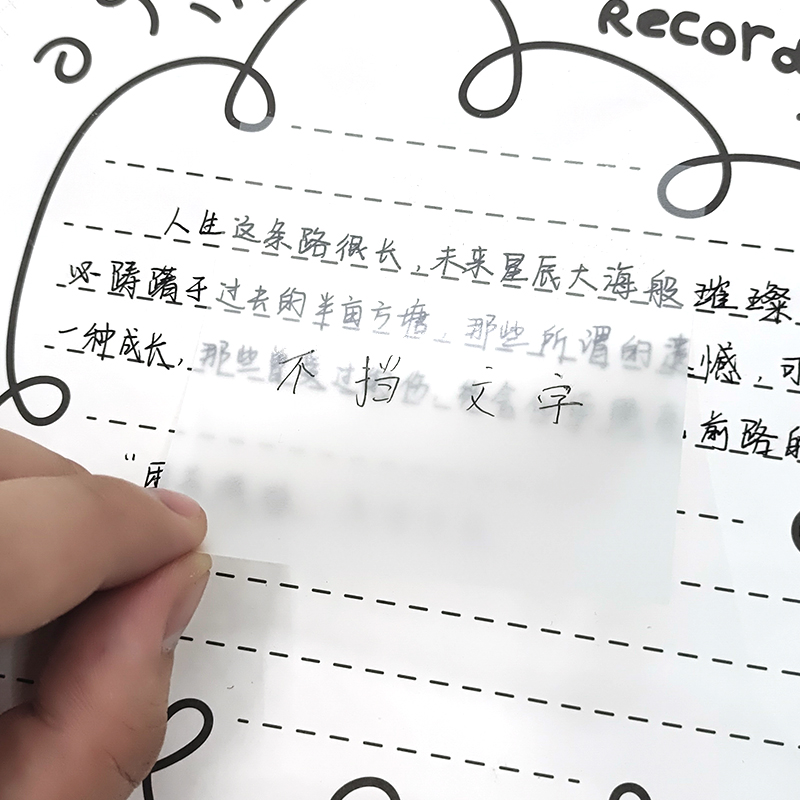 Record
人生这条路很长，未来星辰大海般璀璨，
必踌躇于过去的半亩方塘，那些所谓的遗憾，可
一种成长，那些曾受过 伤，前路的
不挡文字